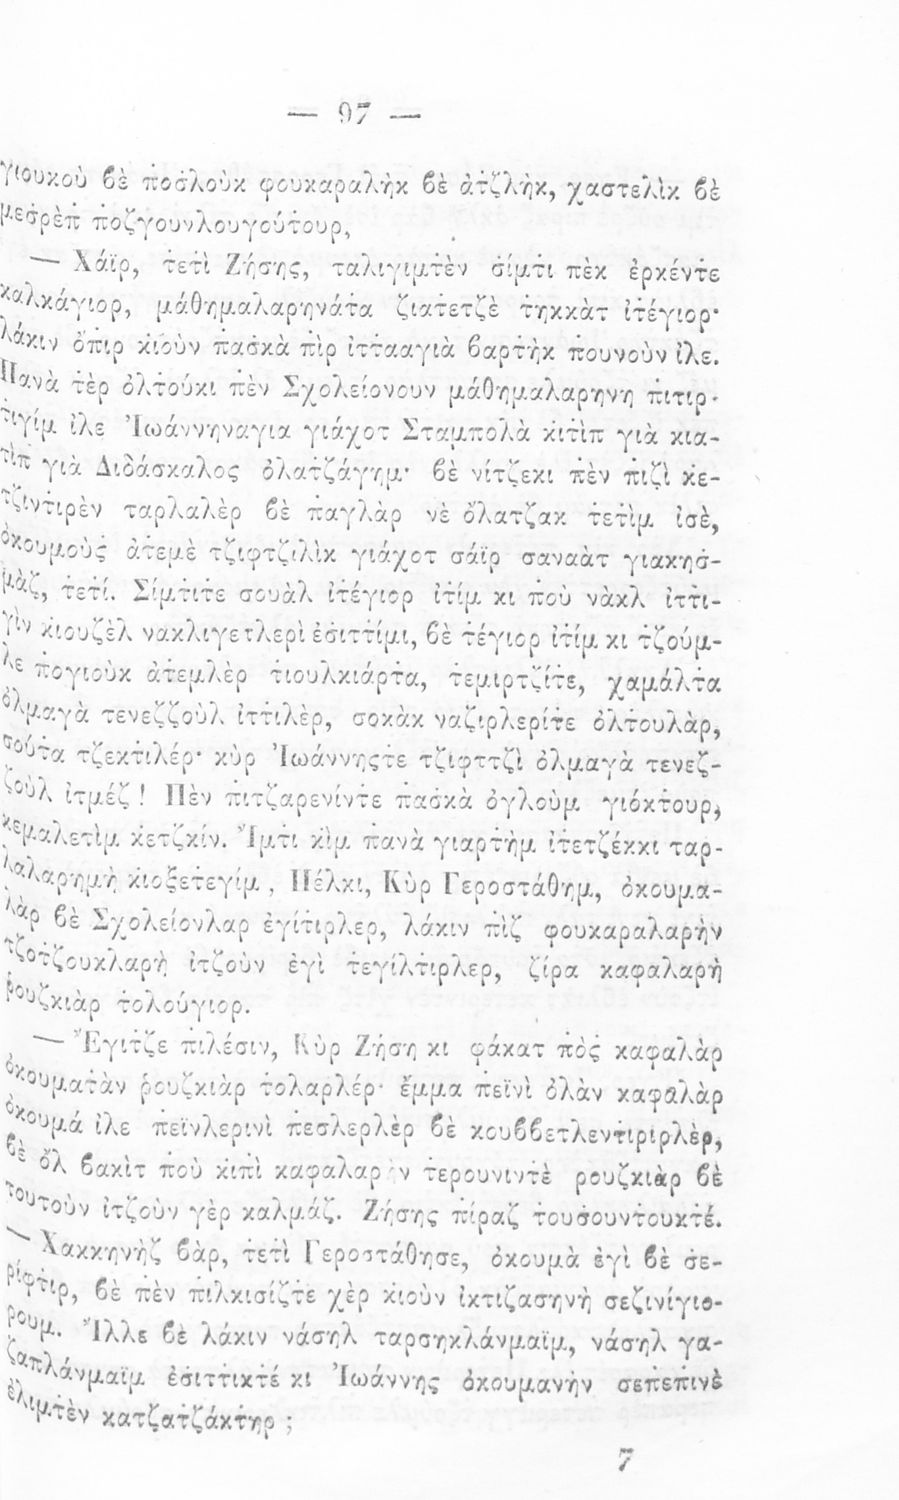 — 97 —
γιουκοὺ βὲ ποσλοὺκ φουκαραλὴκ βὲ ἀτζλὴκ, χαστελὶκ βὲ
μεσρὲπ ποζγουνλουγούτουρ,
— Χάϊρ, τετὶ Ζήσης, ταλιγιμτὲν σίμτι πὲκ ἐρκέντε
καλκάγιορ, μάθημαλαρηνάτα ζιατετζὲ τηκκὰτ ἰτέγιορ·
λάκιν ὄπιρ κιοὺν πασκὰ πὶρ ἰττααγιὰ βαρτὴκ πουνοὺν ἰλε.
Πανὰ τὲρ ὀλτούκι πὲν Σχολείονουν μάθημαλαρηνη πιτιρ-
τιγίμ ἰλε Ἰωάννηναγια γιάχοτ Σταμπολὰ κιτὶπ γιὰ κια-
τὶπ γιὰ Διδάσκαλος ὀλατζάγημ· βὲ νίτζεκι πὲν πιζὶ κε-
τζιντιρὲν ταρλαλὲρ βὲ παγλὰρ νὲ ὄλατζακ τετὶμ ἰσὲ,
ὀκουμοὺς ἀτεμὲ τζιφτζιλὶκ γιάχοτ σάϊρ σαναὰτ γιακησ-
μὰζ, τετί. Σίμτιτε σουὰλ ἰτέγιορ ἰτίμ κι ποὺ νὰκλ ἰττι-
γὶν κιουζὲλ νακλιγετλερὶ ἐσιττίμι, βὲ τέγιορ ἰτίμ κι τζούμ-
λε πογιοὺκ ἀτεμλὲρ τιουλκιάρτα, τεμιρτζίτε, χαμάλτα
ὀλμαγὰ τενεζζοὺλ ἰττιλὲρ, σοκὰκ ναζιρλερίτε ὀλτουλὰρ,
σούτα τζεκτιλέρ· κὺρ Ἰωάννηςτε τζιφττζὶ ὀλμαγὰ τενεζ-
ζοὺλ ἰτμέζ ! Πὲν πιτζαρενίντε πασκὰ ὀγλοὺμ γιόκτουρ,
κεμαλετὶμ κετζκίν. Ἴμτι κὶμ πανὰ γιαρτὴμ ἰτετζέκκι ταρ-
λαλαρημὴ κιοξετεγίμ, Πέλκι, Κὺρ Γεροστάθημ, ὀκουμα-
λὰρ βὲ Σχολείονλαρ ἐγίτιρλερ, λάκιν πὶζ φουκαραλαρὴν
τζοτζουκλαρὴ ἰτζοὺν ἐγὶ τεγίλτιρλερ, ζίρα καφαλαρὴ
ῥουζκιὰρ τολούγιορ.
— Ἔγιτζε πιλέσιν, Κὺρ Ζήση κι φάκατ πὸς καφαλὰρ
ὀκουματὰν ῥουζκιὰρ τολαρλέρ· ἔμμα πεϊνὶ ὀλὰν καφαλὰρ
ὀκουμά ἰλε πεϊνλερινὶ πεσλερλὲρ βὲ κουββετλεντιριρλὲρ,
βὲ ὄλ βακὶτ ποὺ κιπὶ καφαλαρὴν τερουνιντὲ ρουζκιὰρ βὲ
τουτοὺν ἰτζοὺν γὲρ καλμάζ. Ζήσης πίραζ τουσουντουκτέ.
— Χακκηνὴζ βὰρ, τετὶ Γεροστάθησε, ὀκουμὰ ἐγὶ βὲ σε-
ρίφτιρ, βὲ πὲν πιλκισίζτε χὲρ κιοὺν ἰκτιζασηνὴ σεζινίγιο-
ρουμ. Ἴλλε βὲ λάκιν νάσηλ ταρσηκλάνμαϊμ, νάσηλ γα-
ζαπλάνμαϊμ ἐσιττικτέ κι Ἰωάννης ὀκουμανὴν σεπεπινὲ
ἐλιμτὲν κατζατζάκτηρ ;
7